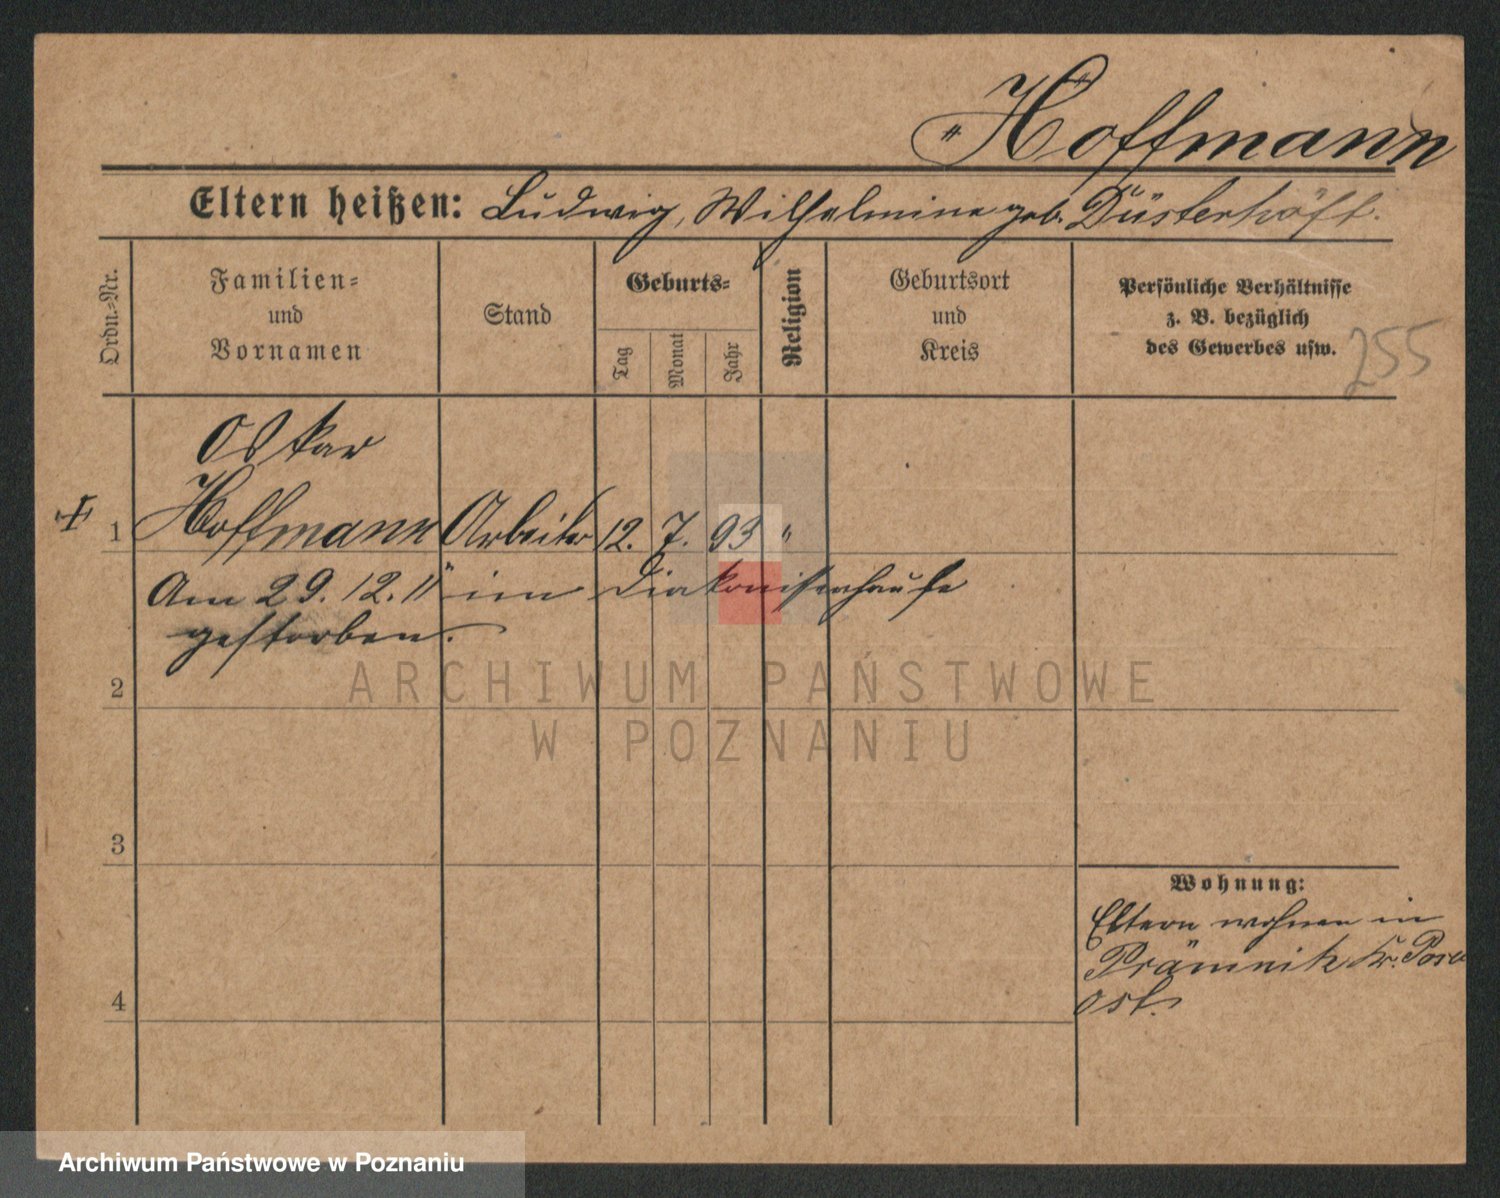 Hoffmann
Eltern heißen: Ludwig, Wilhelmine geb. Düsterhöft.
Ordn.-Nr.
Familien-
und
Vornamen
Stand
Geburts-
Tag
Monat
Jahr
Religion
Geburtsort
und
Kreis
Persönliche Verhältnisse
z. B. bezüglich
des Gewerbes usw.
255
Oskar
1 Hoffmann Arbeiter 12. 7. 93 "
Am 29. 12. 11 im Diakonissenhause
gestorben.
2
3
4
Wohnung:
Eltern wohnen in
Prämnitz Kr. Posen
Ost.
ARCHIWUM PAŃSTWOWE
W POZNANIU
Archiwum Państwowe w Poznaniu